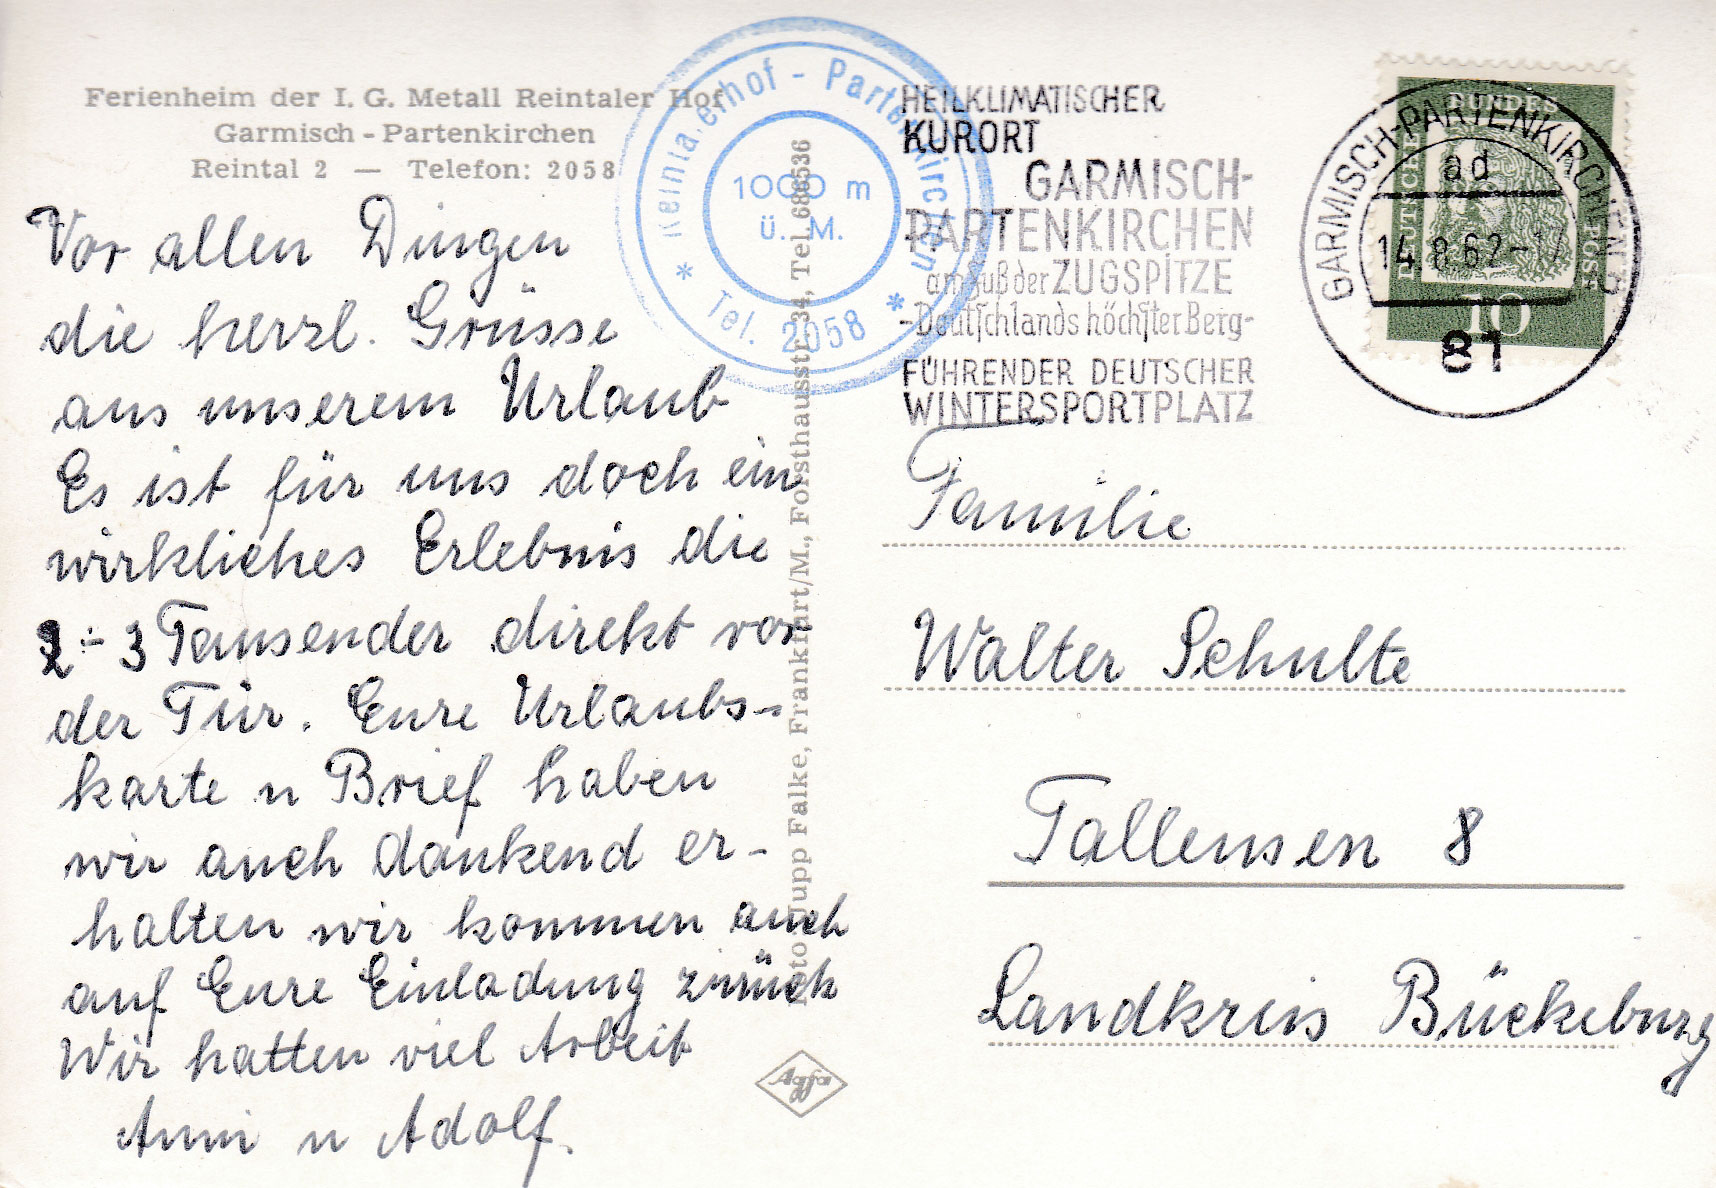 Ferienheim der I. G. Metall Reintaler Hof
Garmisch - Partenkirchen
Reintal 2 — Telefon: 2058
Reintalerhof - Partenkirchen
1000 m
ü. M.
* Tel. 2058 *
HEILKLIMATISCHER
KURORT
GARMISCH-
PARTENKIRCHEN
am Fuß der ZUGSPITZE
-Deutschlands höchster Berg-
FÜHRENDER DEUTSCHER
WINTERSPORTPLATZ
GARMISCH-PARTENKIRCHEN
ad
14.8.62-17
81
DEUTSCHE BUNDESPOST
10
Vor allen Dingen
die herzl. Grüsse
aus unserem Urlaub
Es ist für uns doch ein
wirkliches Erlebnis die
2 ÷ 3 Tausender direkt vor
der Tür. Eure Urlaubs-
karte u Brief haben
wir auch dankend er-
halten wir kommen auch
auf Eure Einladung zurück
Wir hatten viel Arbeit
Anni u Adolf.
Foto: Jupp Falke, Frankfurt/M., Forsthausstr. 34, Tel. 688536
Agfa
Familie
Walter Schulte
Tallensen 8
Landkreis Bückeburg